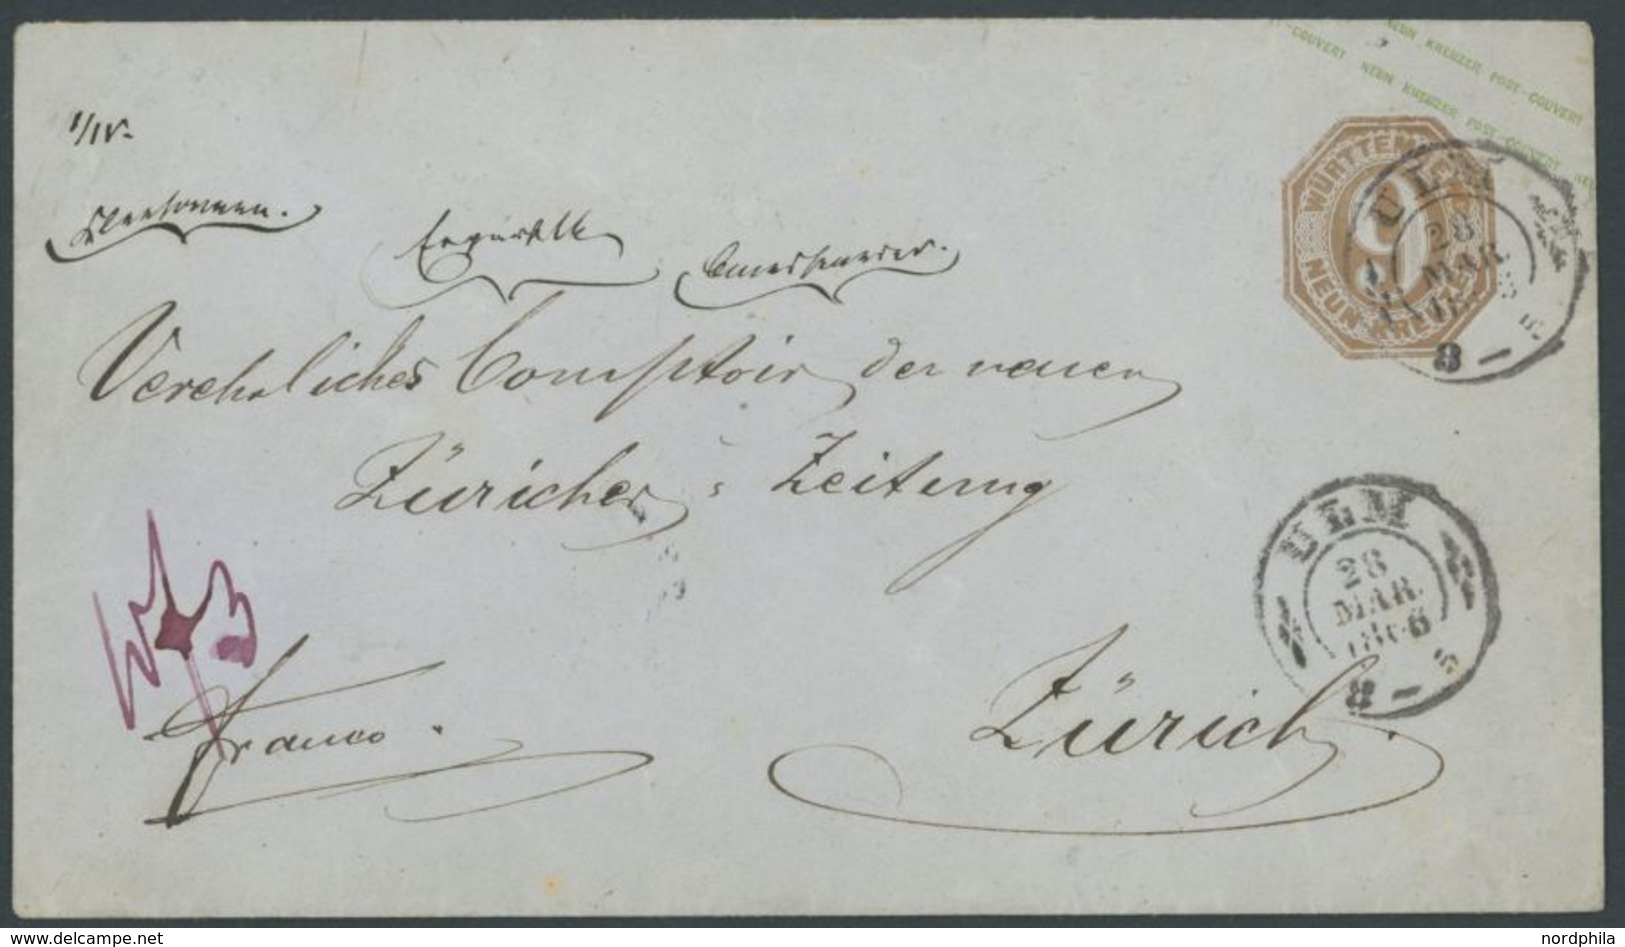 NEUN KREUZER POST-COUVERT
-COUVERT NEUN KREUZER POST-COUVERT NE
1/IV.
WÜRTTEM
9
NEUN KREUZE
ULM
28
MAR
18
8 — 5
Verehrliches Comptoir der neuen
Züricher = Zeitung
ULM
28
MAR.
1866
8 — 5
Franco.
Zürich.
delcampe.net
nordphila